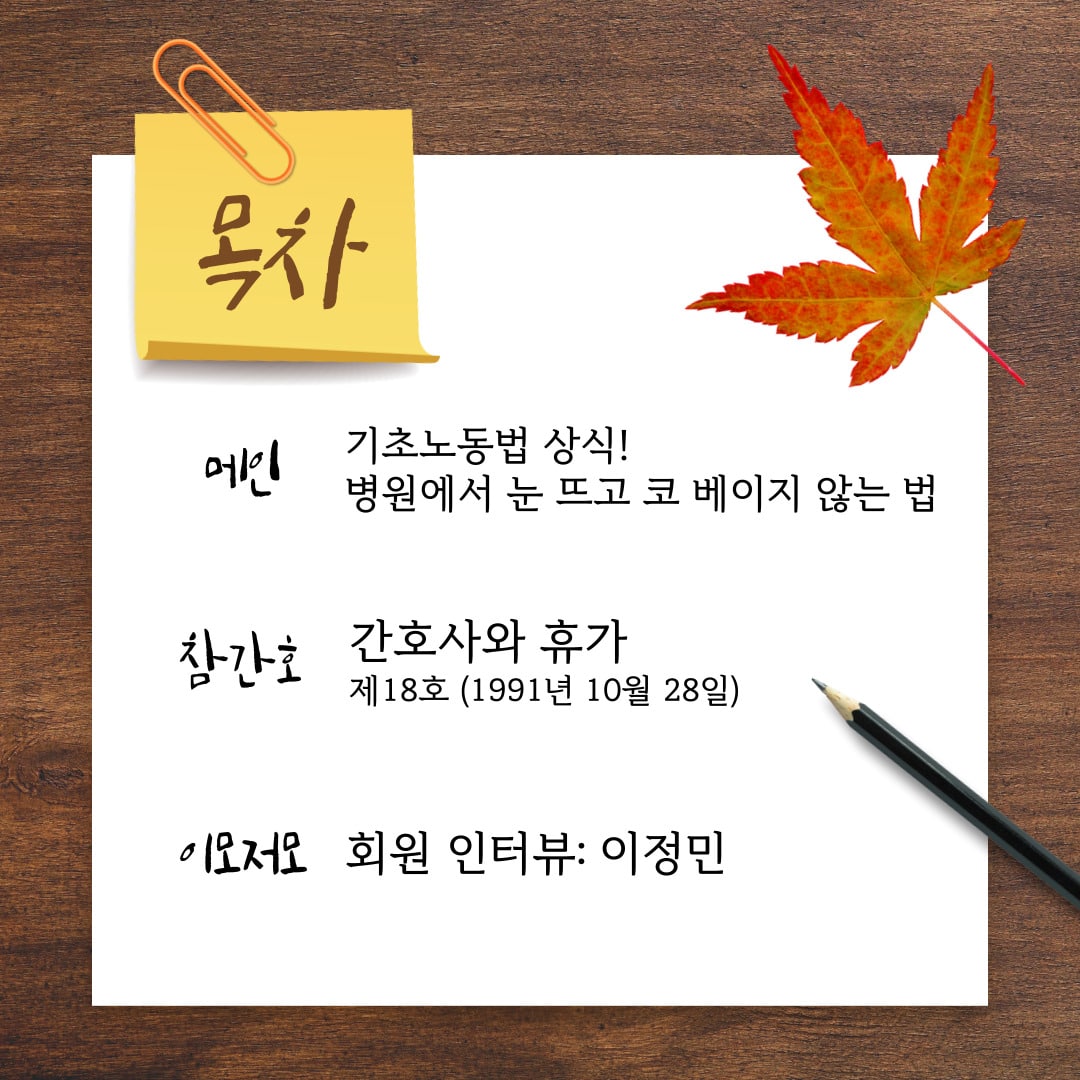 목차
메인
기초노동법 상식!
병원에서 눈 뜨고 코 베이지 않는 법
참간호
간호사와 휴가
제18호 (1991년 10월 28일)
이모저모
회원 인터뷰: 이정민